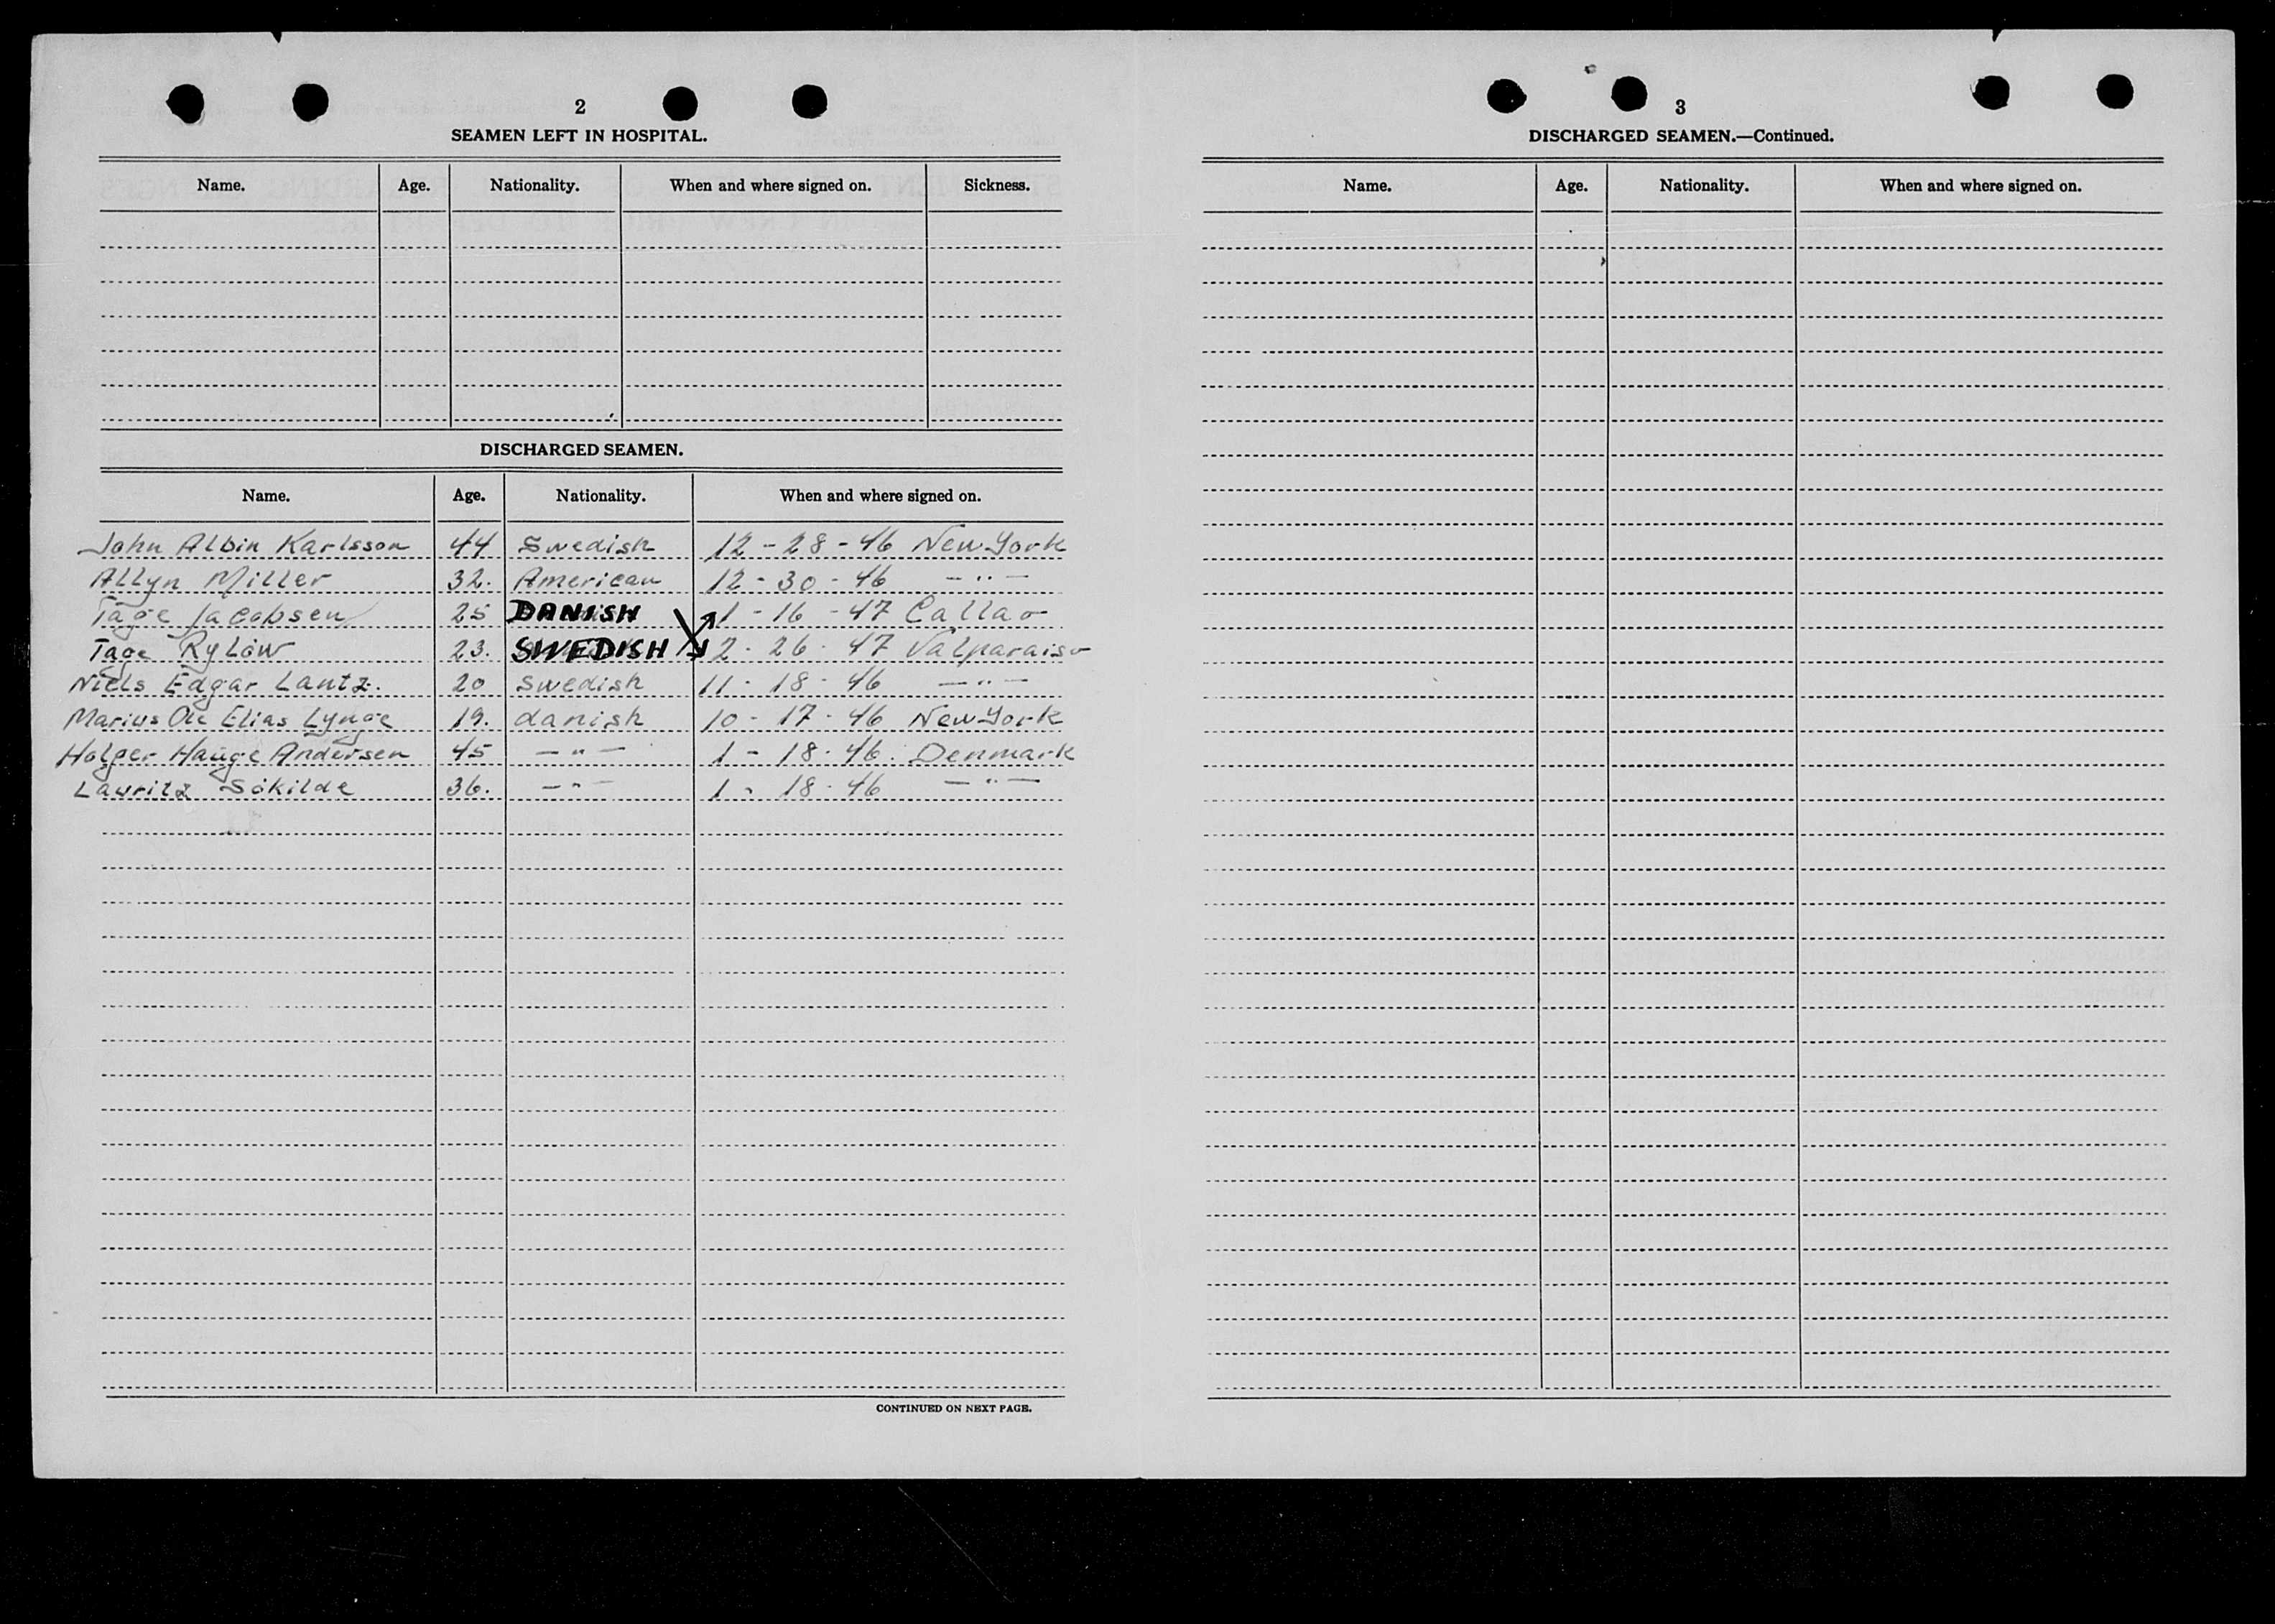 2
SEAMEN LEFT IN HOSPITAL.
Name. Age. Nationality. When and where signed on. Sickness.
DISCHARGED SEAMEN.
Name. Age. Nationality. When and where signed on.
John Albin Karlsson 44 Swedish 12 - 28 - 46 New York
Allyn Miller 32. American 12 - 30 - 46 - " -
Tage Jacobsen 25 DANISH 1 - 16 - 47 Callao
Tage Rylöw 23. SWEDISH 2 - 26 - 47 Valparaiso
Niels Edgar Lantz. 20 Swedish 11 - 18 - 46 - " -
Marius Ole Elias Lynge 19. danish 10 - 17 - 46 New York
Holger Hauge Andersen 45 - " - 1 - 18 - 46. Denmark
Lauritz Sökilde 36. - " - 1 - 18 - 46 - " -
CONTINUED ON NEXT PAGE.
3
DISCHARGED SEAMEN.—Continued.
Name. Age. Nationality. When and where signed on.